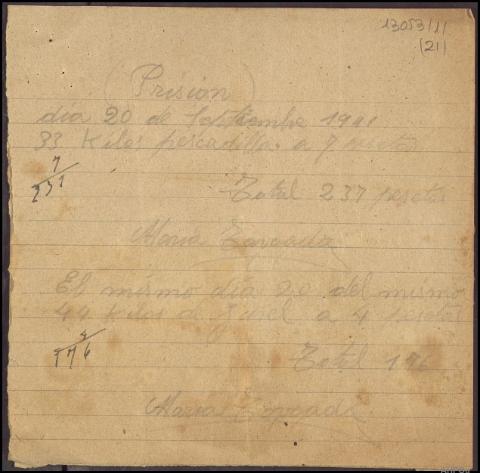 13053/1/
(21)
(Prision)
día 20 de Septiembre 1941
33 Kilos pescadilla a 7 pesetas
7
231
Total 237 pesetas
Maria
El mismo día 20 del mismo
44 Kilos de Jurel a 4 pesetas
4
176
Total 176
Maria